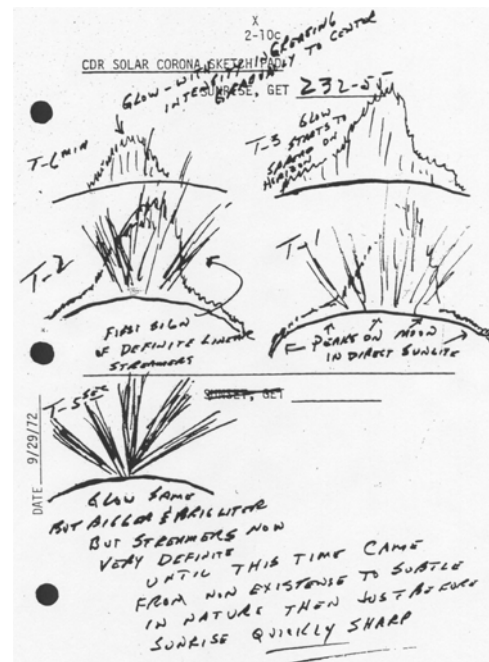 X
2-10c
CDR SOLAR CORONA SKETCH PAD
GLOW - WITH
INTENSITY INCREASING
GRADUALLY TO CENTER
SUNRISE, GET 232-55
T-6 MIN
T-3 GLOW
STARTS TO
SPREAD ON
HORIZON
T-2
T-1
FIRST SIGN
OF DEFINITE LINEAR
STREAMERS
PEAKS ON MOON
IN DIRECT SUNLITE
SUNSET, GET
T-5 SEC
DATE 9/29/72
GLOW SAME
BUT BIGGER & BRIGHTER
BUT STREAMERS NOW
VERY DEFINITE
UNTIL THIS TIME CAME
FROM NON EXISTENSE TO SUBTLE
IN NATURE THEN JUST BEFORE
SUNRISE QUICKLY SHARP